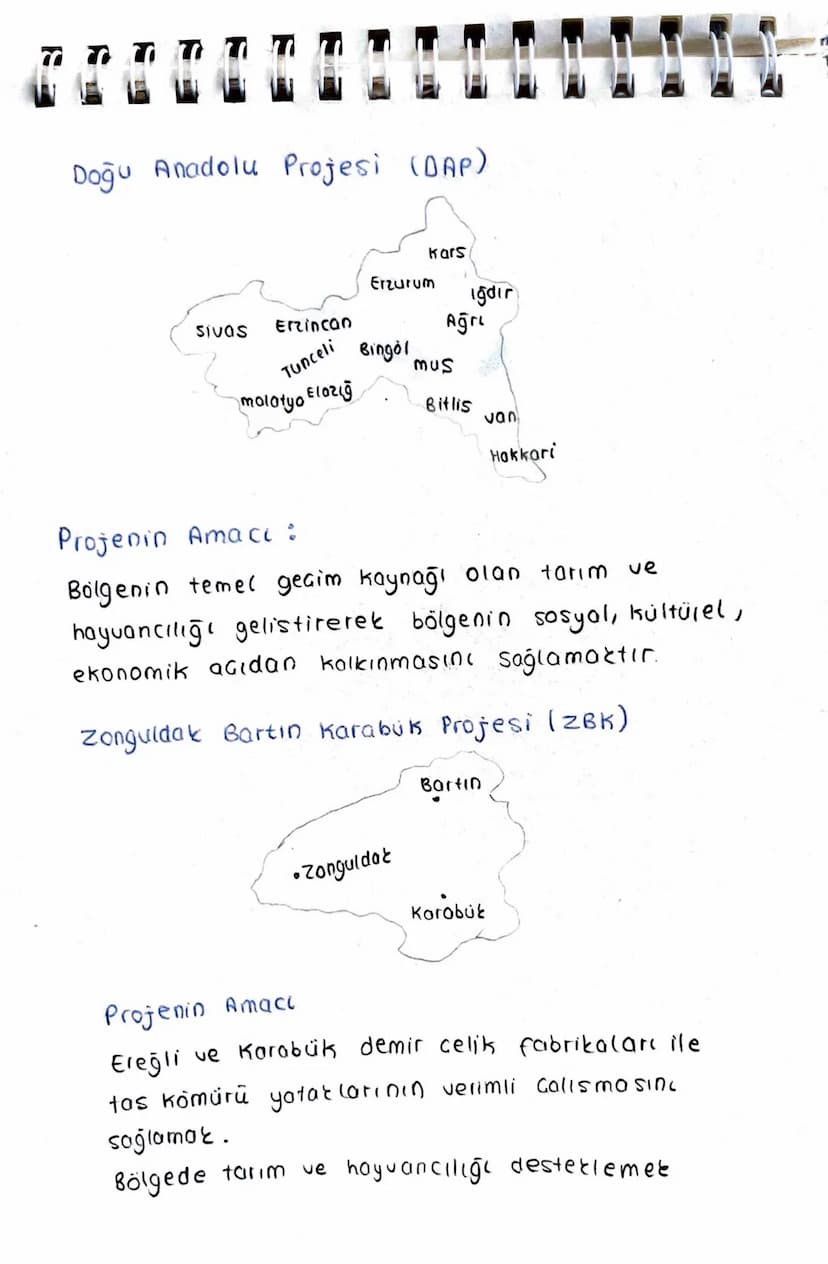 Doğu Anadolu Projesi (DAP)
Kars
Erzurum
Iğdır
Sivas Erzincan Ağrı
Tunceli Bingöl
mus
malatya Elazığ
Bitlis van
Hakkari
Projenin Amacı :
Bölgenin temel gecim kaynağı olan tarım ve
hayvancılığı gelistirerek bölgenin sosyal, kültürel,
ekonomik acıdan kalkınmasını sağlamaktır.
Zonguldak Bartın Karabük Projesi (ZBK)
Bartın
Zonguldak
Karabük
Projenin Amacı
Ereğli ve Karabük demir celik fabrikaları ile
tas kömürü yataklarının verimli calismasını
sağlamak.
Bölgede tarım ve hayvancılığı desteklemek